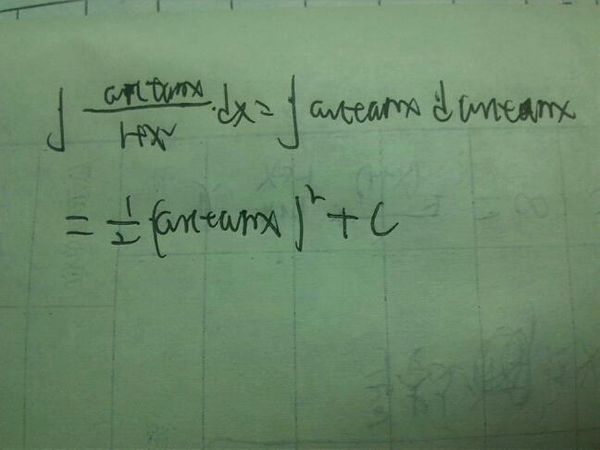 ∫ arctanx/1+x² · dx = ∫ arctanx d arctanx
= 1/2 (arctanx)² + C